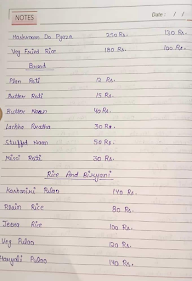 NOTES
Date: / /
Mushroom Do Pyaza 250 Rs. 130 Rs.
Veg Fried Rice 180 Rs. 100 Rs.
Bread
Plan Roti 12 Rs.
Butter Roti 15 Rs.
Butter Naan 40 Rs.
Lachha Pratha 30 Rs.
Stuffed Naan 50 Rs.
Missi Roti 30 Rs.
Rice And Biryani
Kashmiri Pulao 140 Rs.
Plain Rice 80 Rs.
Jeera Rice 100 Rs.
Veg Pulao 120 Rs.
Haryali Pulao 140 Rs.